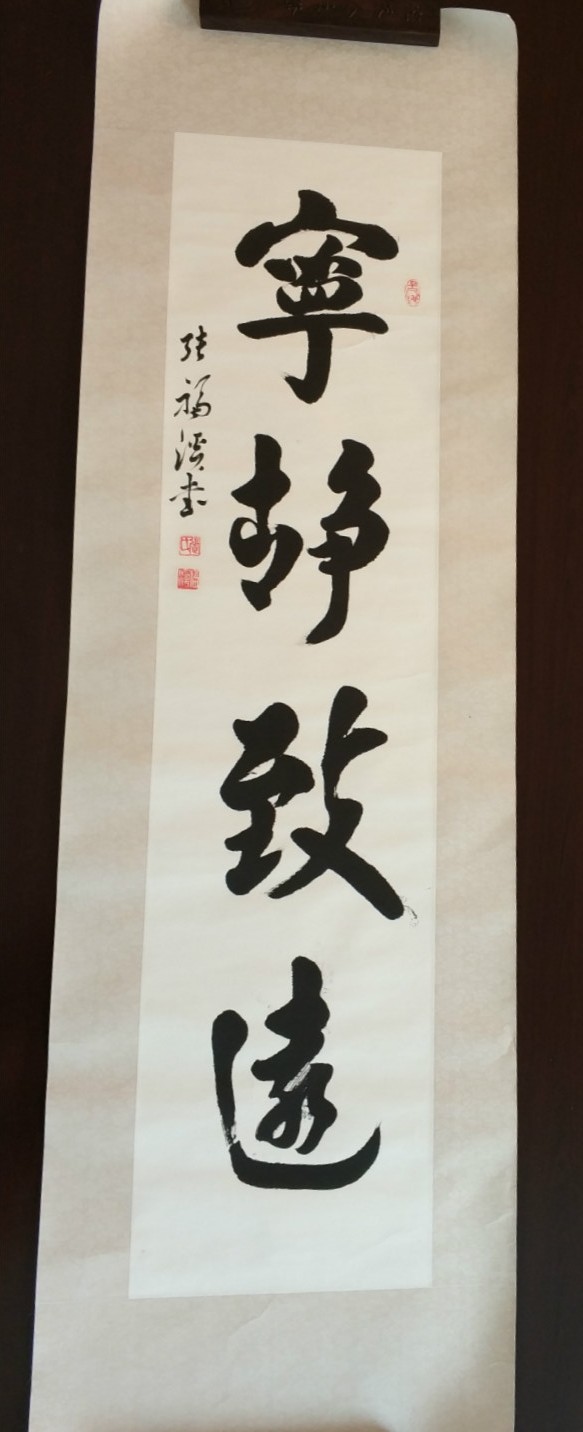 寧靜致遠
張福溪書